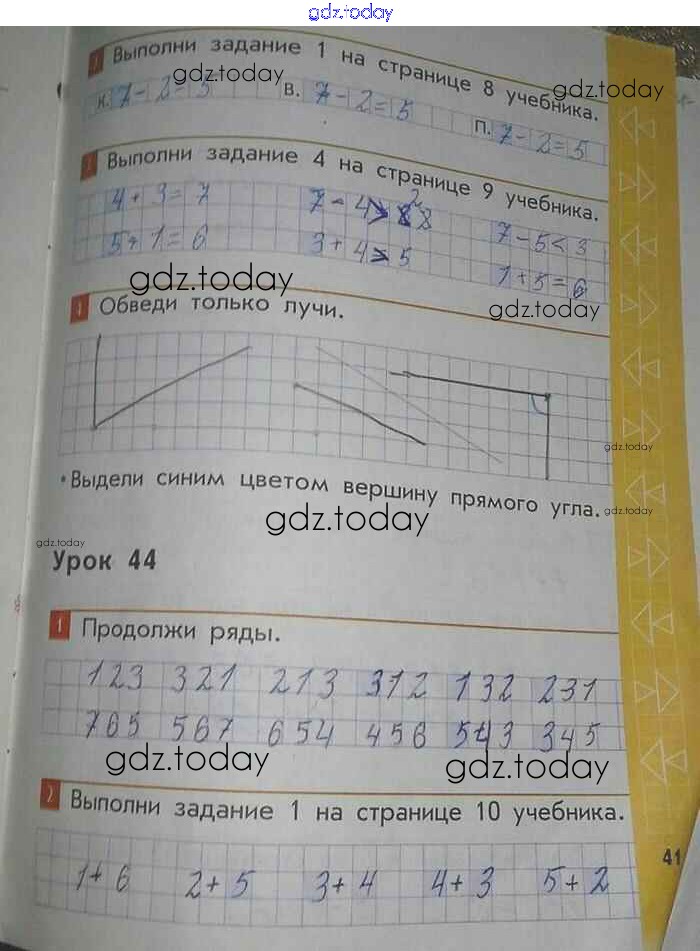 gdz.today
1 Выполни задание 1 на странице 8 учебника.
gdz.today gdz.today
К. 7 - 2 = 5 В. 7 - 2 = 5 П. 7 - 2 = 5
Выполни задание 4 на странице 9 учебника.
4 + 3 = 7 7 - 4 > 2 7 - 5 < 3
5 + 1 = 6 3 + 4 > 5 1 + 5 = 6
gdz.today gdz.today
Обведи только лучи.
gdz.today
• Выдели синим цветом вершину прямого угла.
gdz.today gdz.today
gdz.today
Урок 44
1 Продолжи ряды.
123 321 213 312 132 231
765 567 654 456 543 345
gdz.today gdz.today
2 Выполни задание 1 на странице 10 учебника.
41
1 + 6 2 + 5 3 + 4 4 + 3 5 + 2
gdz.today